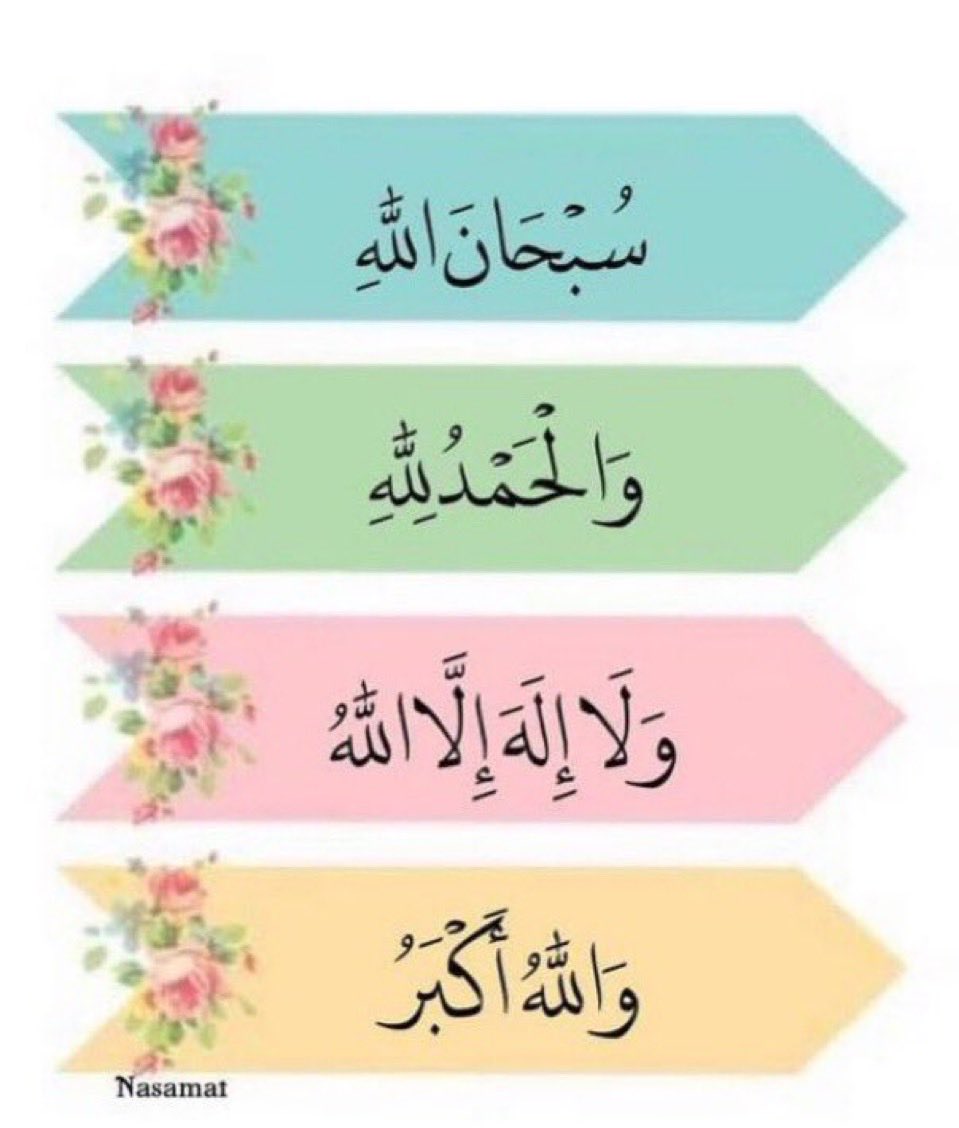 سُبْحَانَ اللهِ
وَالْحَمْدُ لِلهِ
وَلَا إِلَهَ إِلَّا اللهُ
وَاللهُ أَكْبَرُ
Nasamat